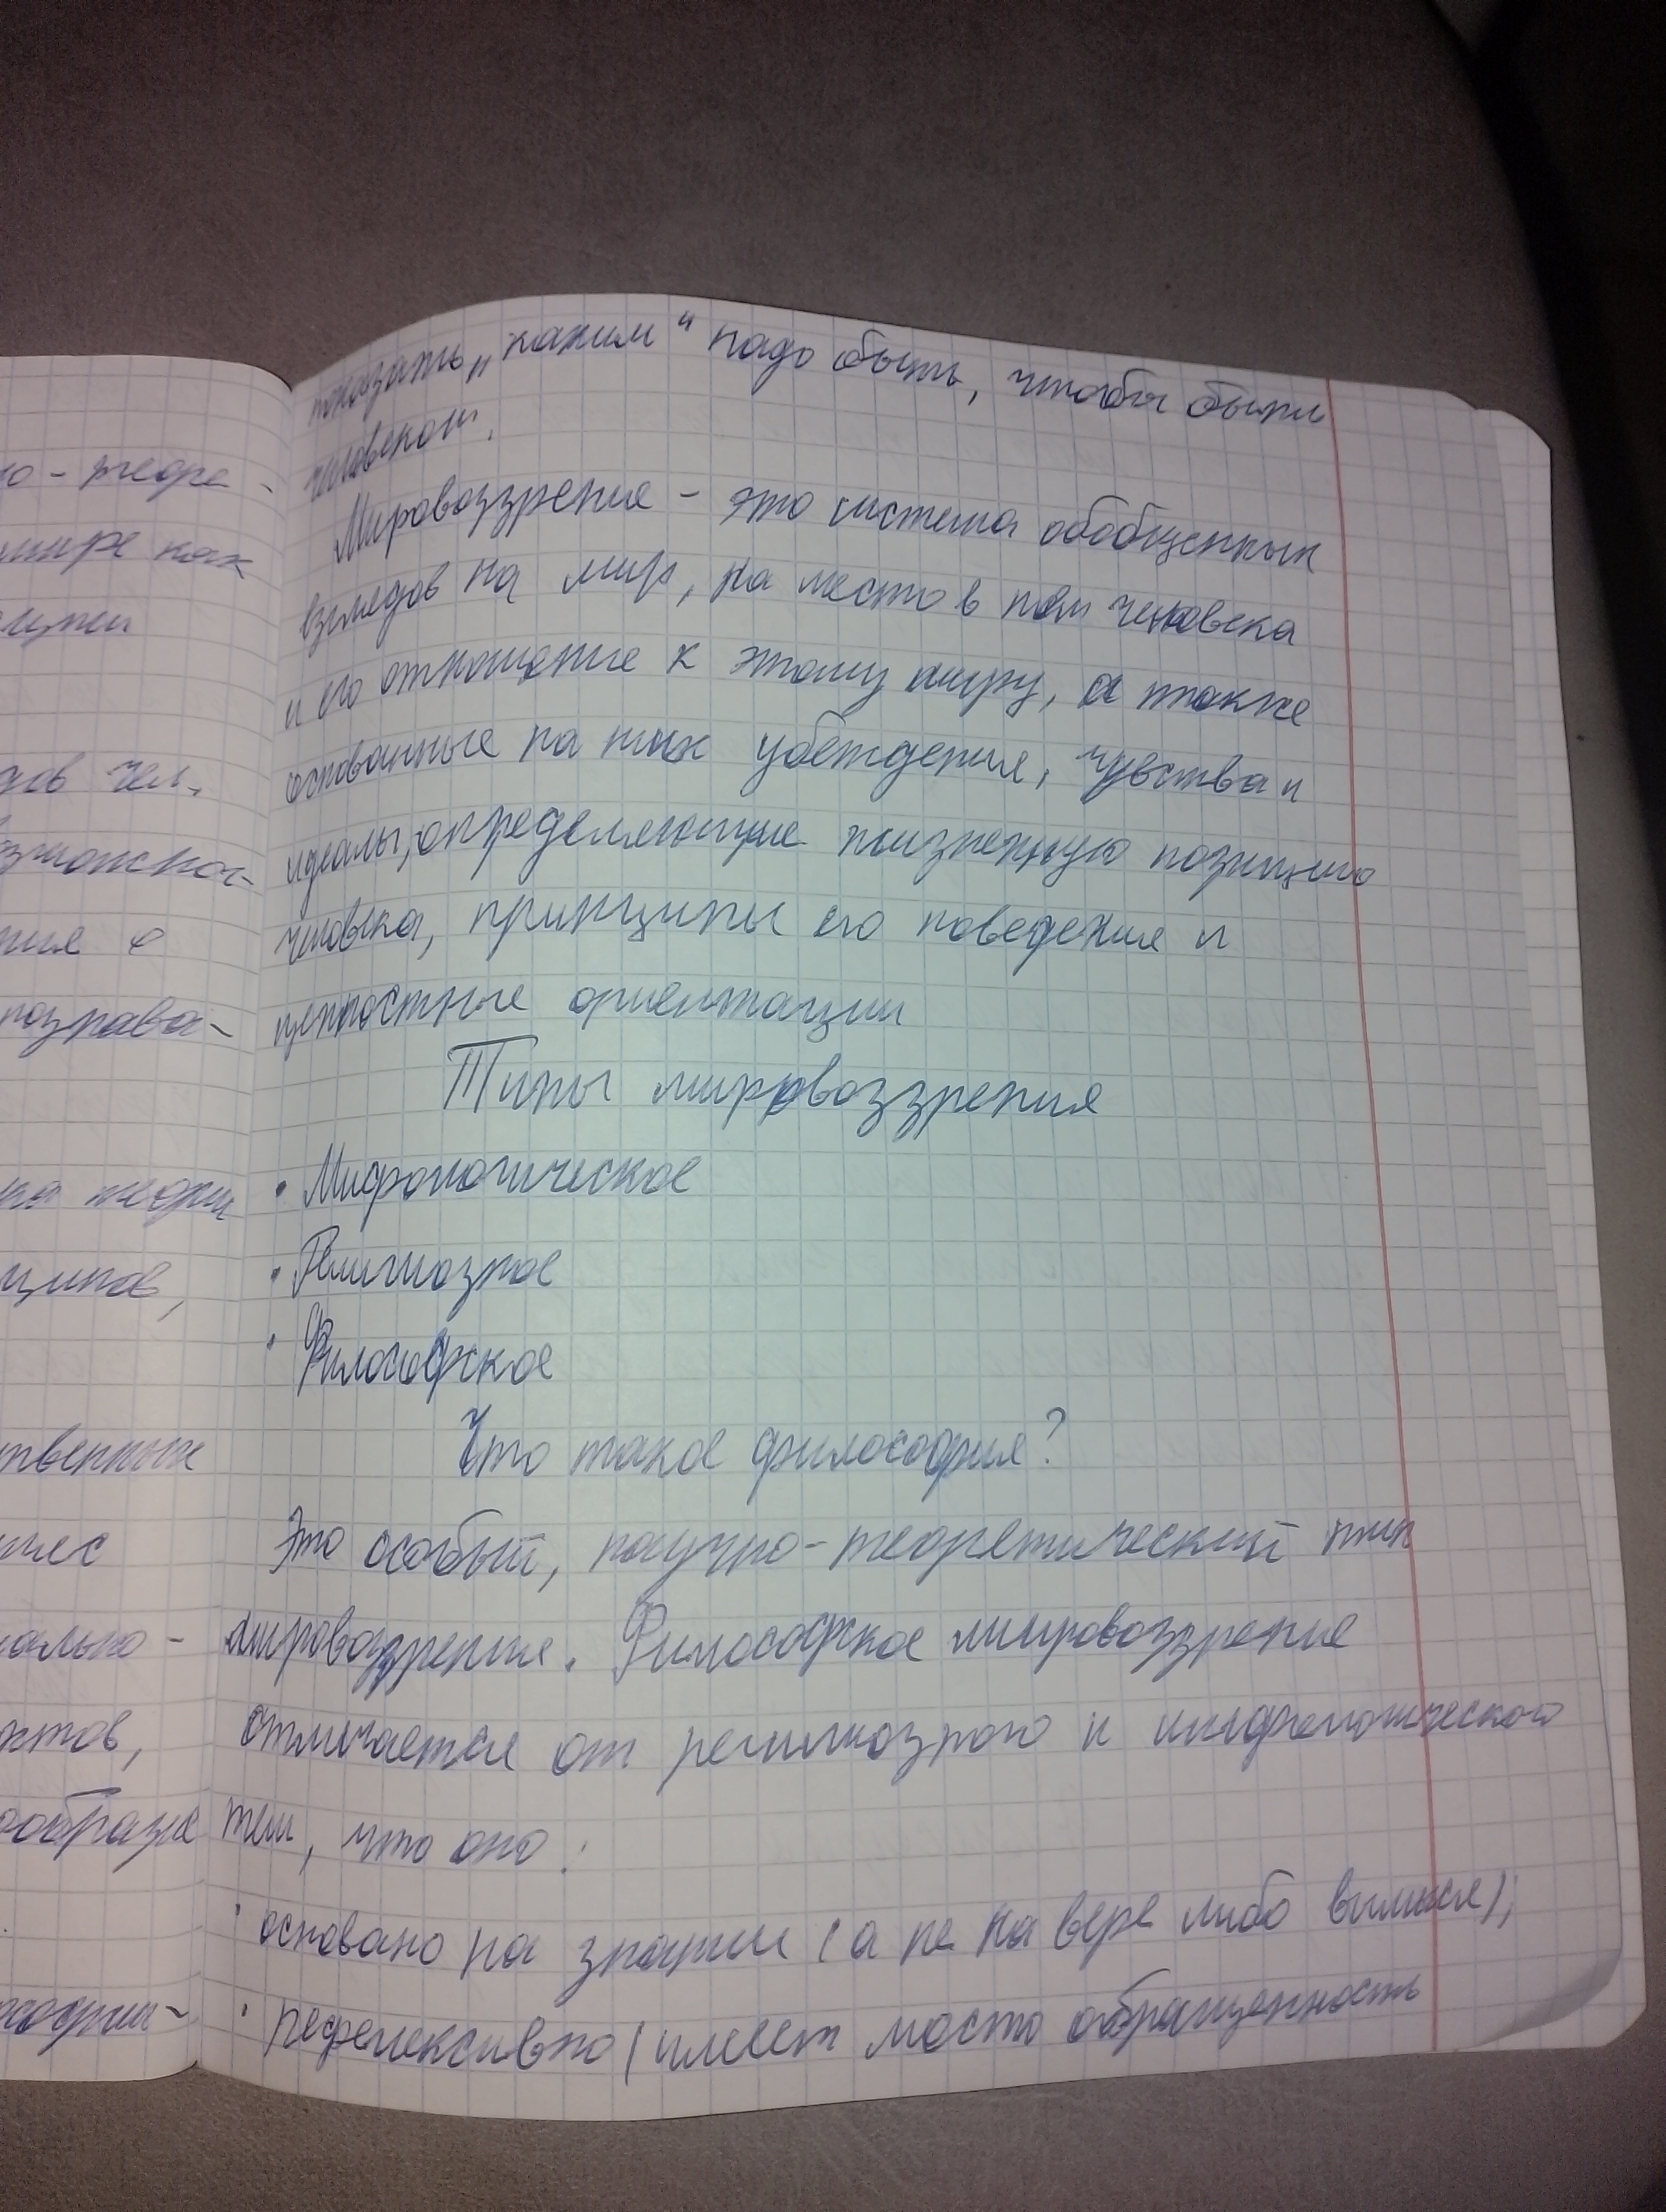 о-теоре-
мире как
ции
дов чел.
ния о
познава-
на теории
ципов,
твенных
ально-
ктов,
ообразие
ософии-
показать „каким“ надо быть, чтобы быть
человеком.
Мировоззрения - это система обобщенных
взглядов на мир, на место в нём человека
и его отношение к этому миру, а также
основанные на них убеждения, чувства и
идеалы, определяющие жизненную позицию
человека, принципы его поведения и
ценностные ориентации
Типы мировоззрения
• Мифологическое
• Религиозное
• Философское
Что такое философия?
Это особый, научно-теоретический тип
мировоззрения. Философское мировоззрение
отличается от религиозного и мифологического
тем, что оно:
• основано на знании (а не на вере либо вымысле);
• рефлексивно (имеет место обращенность